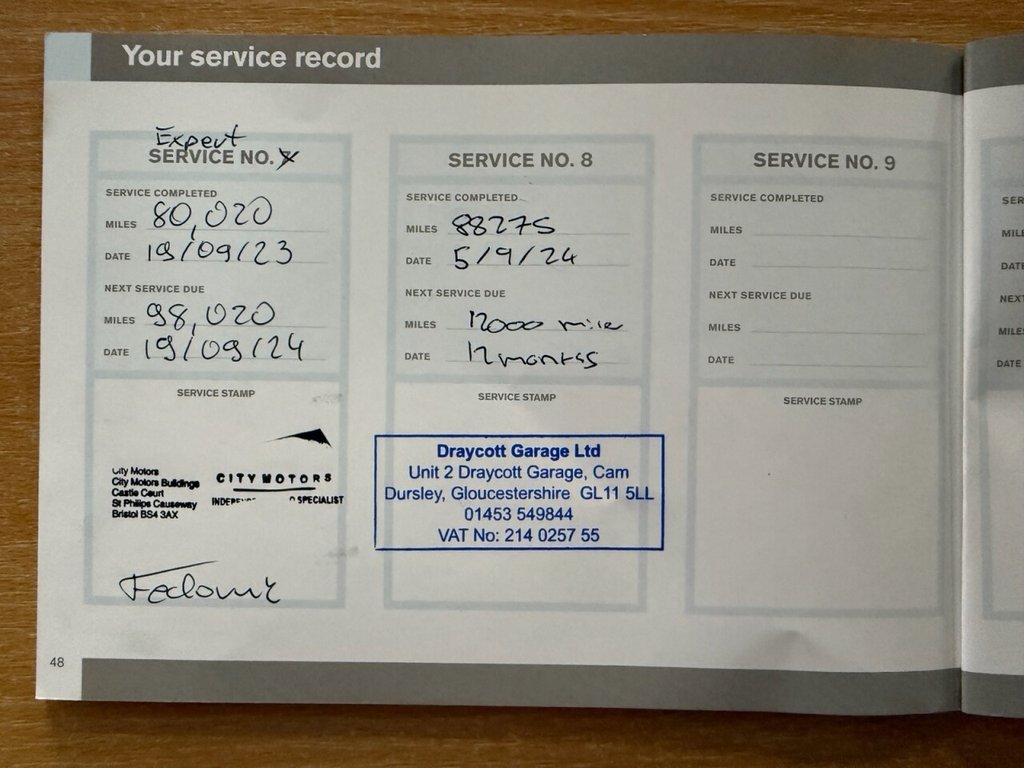 Your service record
Expert
SERVICE NO.
SERVICE COMPLETED
MILES 80,020
DATE 19/09/23
NEXT SERVICE DUE
MILES 98,020
DATE 19/09/24
SERVICE STAMP
City Motors
City Motors Buildings
Castle Court
St Philips Causeway
Bristol BS4 3AX
CITY MOTORS
SPECIALIST
SERVICE NO. 8
SERVICE COMPLETED
MILES 88275
DATE 5/9/24
NEXT SERVICE DUE
MILES 12000 mile
DATE 12 months
SERVICE STAMP
Draycott Garage Ltd
Unit 2 Draycott Garage, Cam
Dursley, Gloucestershire GL11 5LL
01453 549844
VAT No: 214 0257 55
SERVICE NO. 9
SERVICE COMPLETED
MILES
DATE
NEXT SERVICE DUE
MILES
DATE
SERVICE STAMP
48